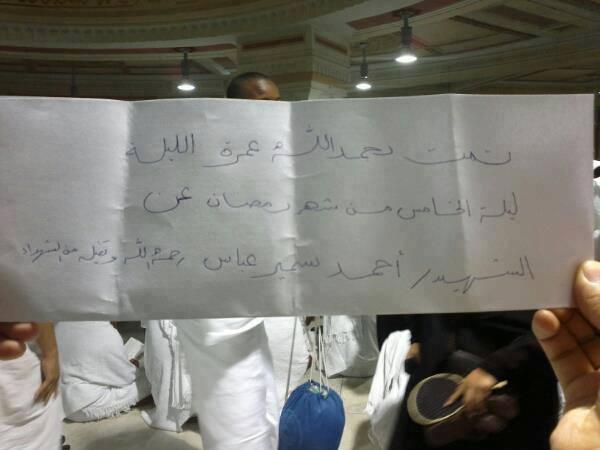 تمت بحمد الله عمرة الليلة
ليلة الخامس من شهر رمضان عن
الشهيد/ أحمد سمير عباس رحمه الله وتقبله من الشهداء